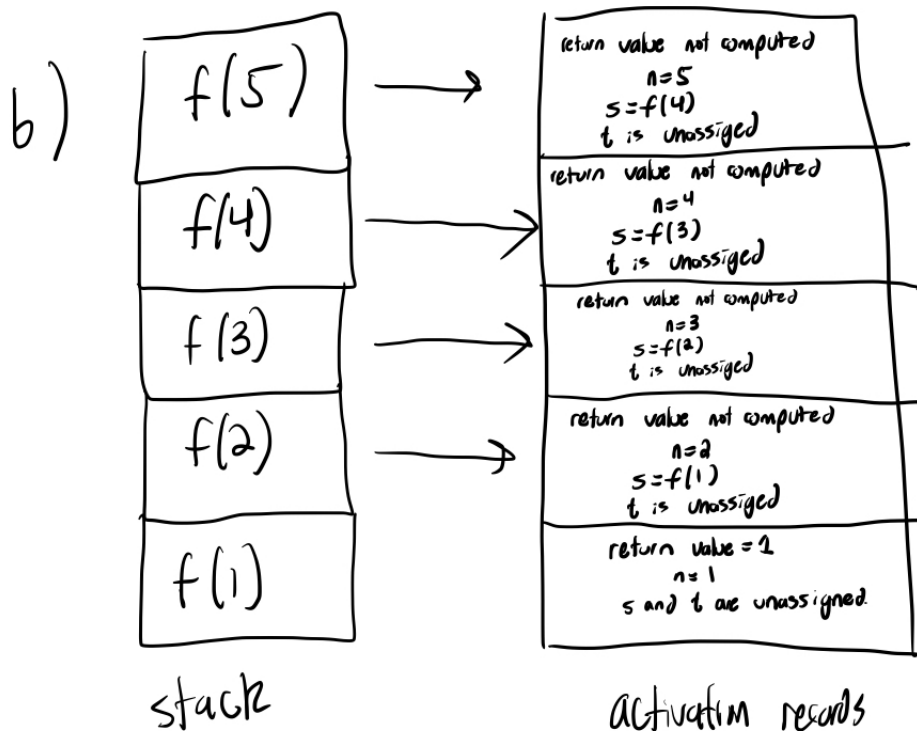 b)
f(5)
return value not computed
n=5
s=f(4)
t is unassiged
f(4)
return value not computed
n=4
s=f(3)
t is unassiged
f(3)
return value not computed
n=3
s=f(2)
t is unassiged
f(2)
return value not computed
n=2
s=f(1)
t is unassiged
f(1)
return value = 1
n=1
s and t are unassigned.
stack
activation records